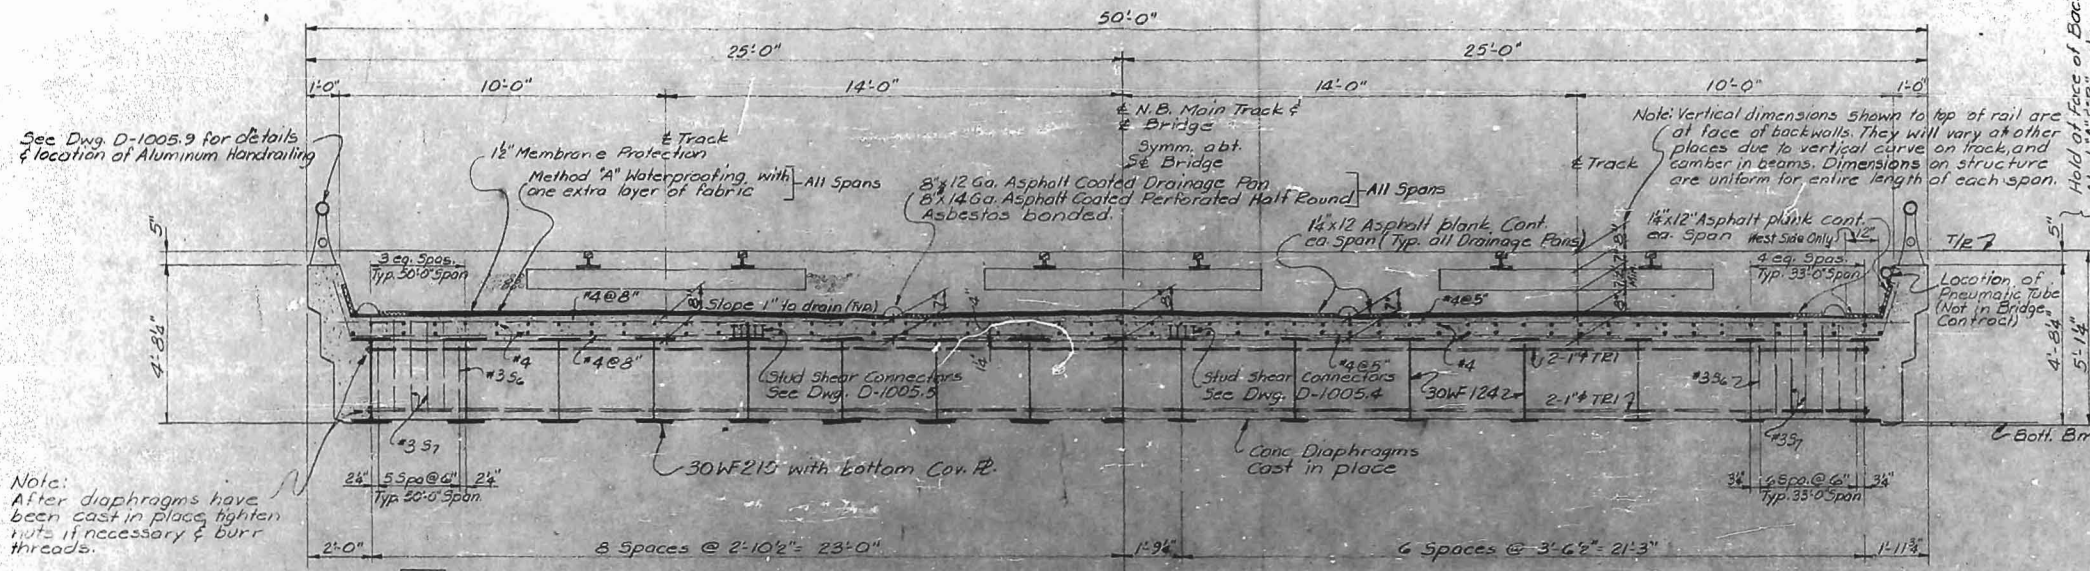 50'-0"
25'-0"
25'-0"
1'-0"
10'-0"
14'-0"
14'-0"
10'-0"
1'-0"
See Dwg. D-1005.9 for details
& location of Aluminum Handrailing
℄ Track
1½" Membrane Protection
Method "A" Waterproofing with
one extra layer of fabric
All Spans
℄ N.B. Main Track &
℄ Bridge
Symm. abt.
℄ Bridge
8"x12 Ga. Asphalt Coated Drainage Pan
8"x14 Ga. Asphalt Coated Perforated Half Round
Asbestos bonded.
All Spans
℄ Track
Note: Vertical dimensions shown to top of rail are
at face of backwalls. They will vary at other
places due to vertical curve on track, and
camber in beams. Dimensions on structure
are uniform for entire length of each span.
Hold at Face of
1¼"x12 Asphalt plank Cont.
ea. Span (Typ. all Drainage Pans)
1¼"x12" Asphalt plank cont.
ea. Span
West Side Only
12"
T/R
5"
5"
3 eq. Spas.
Typ. 50'-0" Span
4 eq. Spas.
Typ. 33'-0" Span
Location of
Pneumatic Tube
(Not in Bridge
Contract)
#4@8"
Slope 1" to drain (Typ.)
8"
7"
8"
7"
#4@5"
Min.
4'-8¼"
4'-8¼"
5'-1¼"
#4
#4@8"
#3S6
#3S7
Stud Shear Connectors
See Dwg. D-1005.5
1¼"
Stud Shear Connectors
See Dwg. D-1005.4
#4@5"
#4
30WF124
2-1"ϕ TR1
2-1"ϕ TR1
#3S6
#3S7
Bott. Bm
30WF210 with bottom Cov. ℞.
Conc Diaphragms
Cast in place
Note:
After diaphragms have
been cast in place, tighten
nuts if necessary & burr
threads.
2¼"
5 Spa @ 6"
2¼"
Typ. 50'-0" Span
3¼"
6 Spa. @ 6"
3¼"
Typ. 33'-0" Span
2'-0"
8 Spaces @ 2'-10½" = 23'-0"
1'-9¼"
6 Spaces @ 3'-6½" = 21'-3"
1'-11¾"